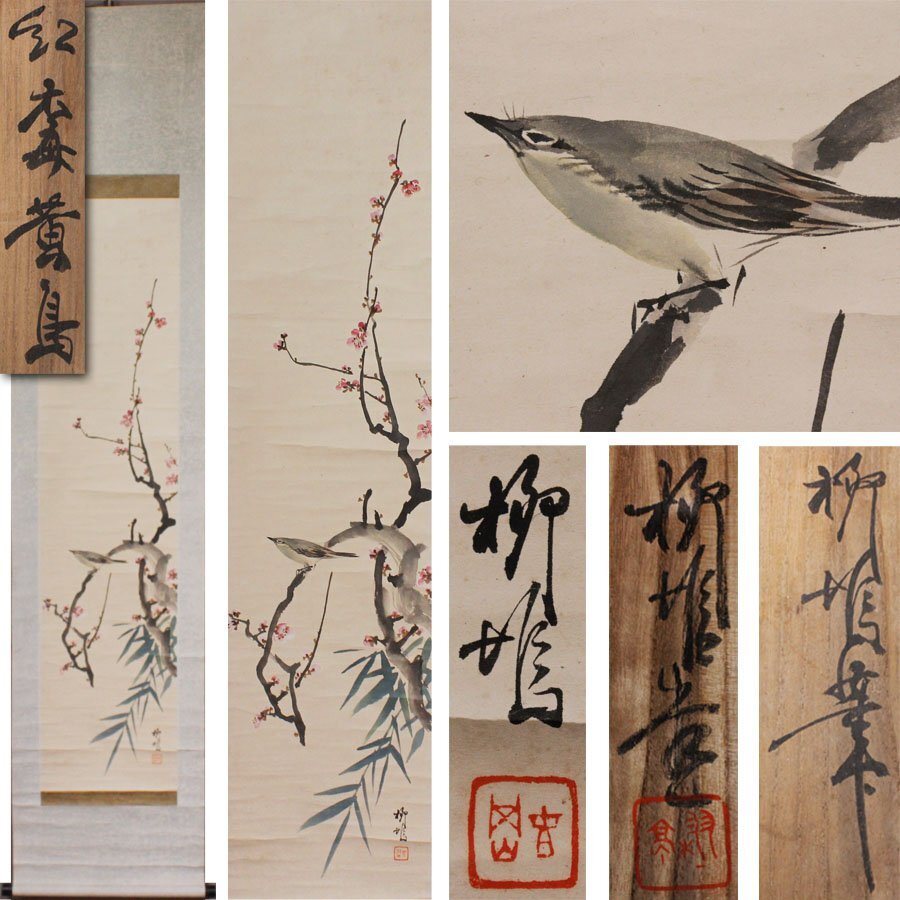 紅梅黄鳥
柳塢
柳塢
柳塢
柳塢
柳塢筆